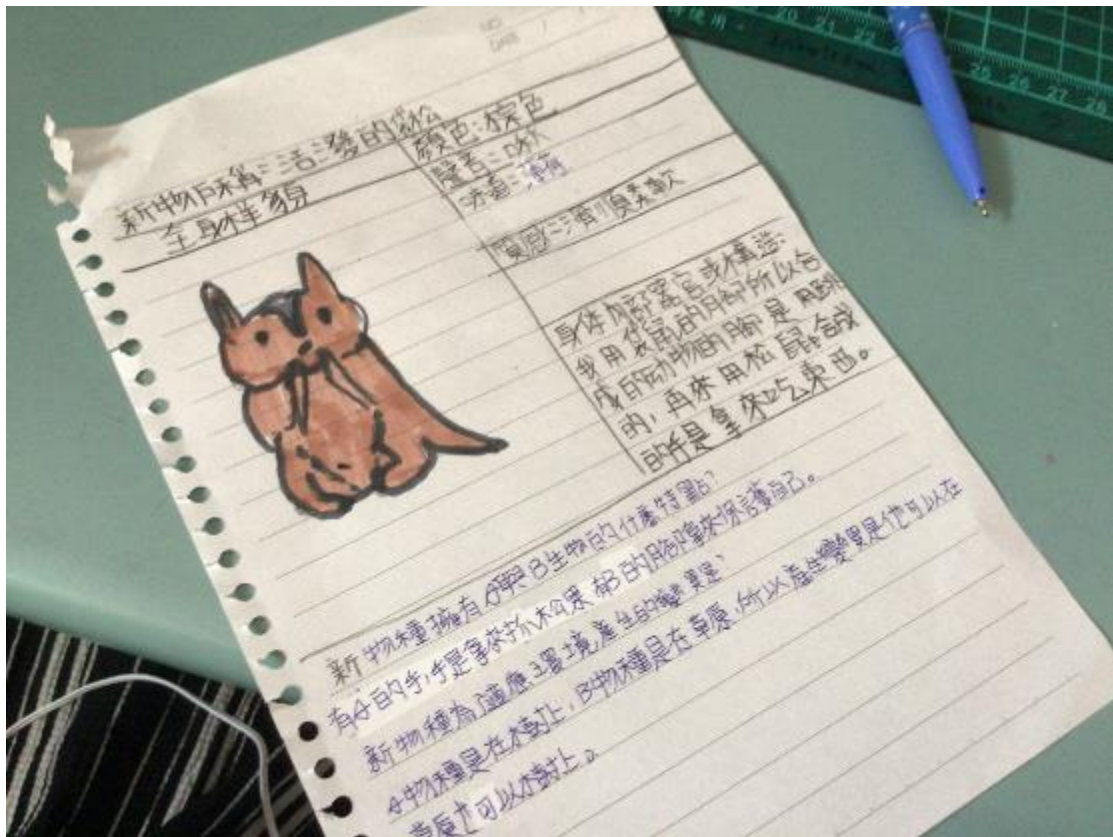 NO
DATE
新物種名稱:活潑的袋松
全身樣貌
顏色:棕色
聲音:吱
味道:
質感:滑順柔軟
身体內部器官或構造:
我用袋鼠的腳所以合
成的动物的腳是用跳
的,再來用松鼠合成
的手是拿來吃東西。
新物種擁有A與B生物的什麼特點?
有A的手,手是拿來扒松果,B的腳拿來保護自己。
新物種為了適應環境產生的變異是?
A物種是在木樹上,B物種是在草原,所以產生變異是他可以在
草原也可以木樹上。
20 21 22 25 26 27 28